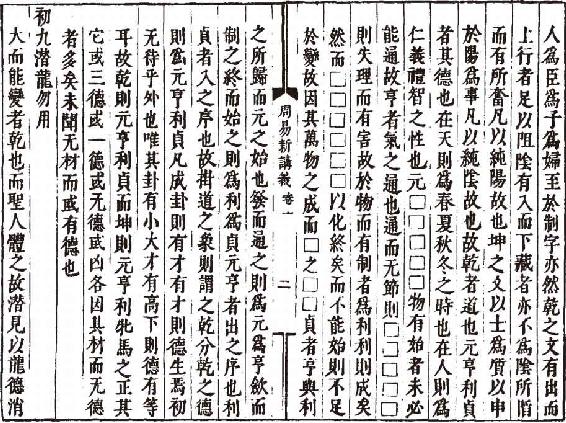 人爲臣爲子爲婦至於制字亦然乾之文有出而
上行者足以阻陰有入而下藏者亦不爲陰所㨔
而有所奮凡以純陽故也坤之文以土爲質以申
於陽爲事凡以純陰故也故乾者道也元亨利貞
者其德也在天則爲春夏秋冬之時也在人則爲
仁義禮智之性也元□□□□物有始者未必
能通故亨者氣之通也通而無節則□□□□
則失理而有害故於物而有制者爲利利則成矣
然而□□□□□□以化終矣而不能始則不足
於變故因其萬物之成而□之□□貞者亨與利
周易新講義 卷一
二
之所歸而元之始也發而通之則爲元爲亨歛而
制之終而始之則爲利爲貞元亨者出之序也利
貞者入之序也故揹道之衆則謂之乾分乾之德
則爲元亨利貞凡成卦則有才有才則德生焉初
无待乎外也唯其卦有小大才有高下則德有等
耳故乾則元亨利貞而坤則元亨利牝馬之正其
它或三德或一德或无德或凶各因其材而无德
者多矣未聞无材而或有德也
初九潛龍勿用
大而能變者乾也而聖人體之故潛見以龍德消